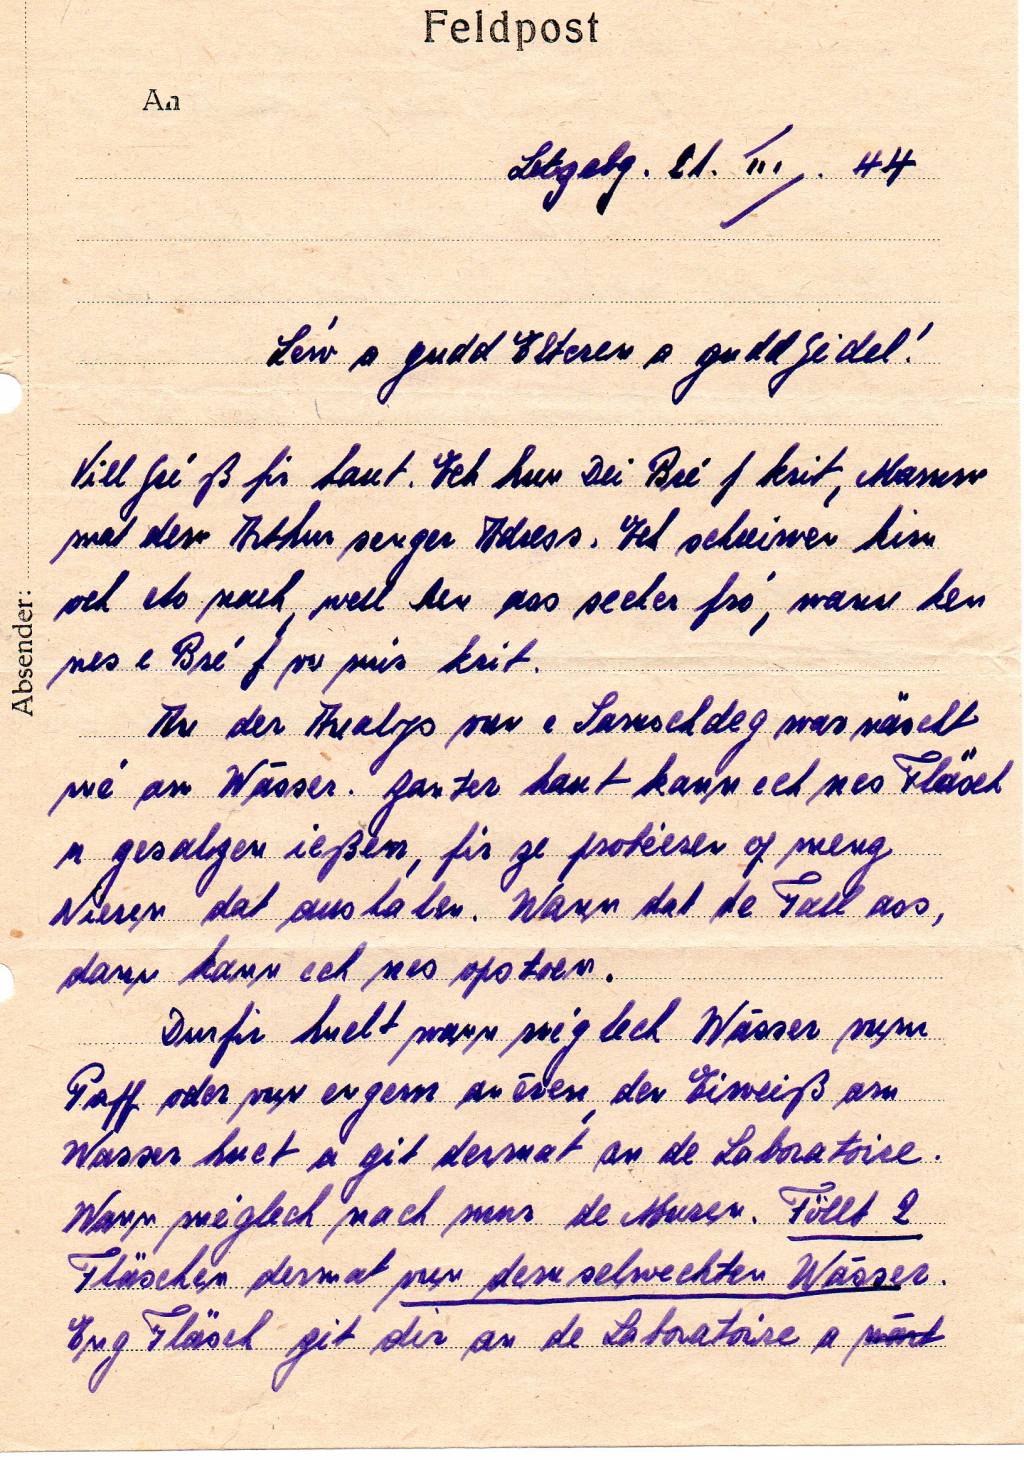 Feldpost
An
Absender:
Letzgebg. 21. III. 44
Léiw a gudd Elteren a gudd Geidel!
Vill Gré ß fir haut. Ech hun Dei Bré f krit, Mamm
mat dem Arthur senger Adress. Ech schreiwen him
och eto nach, well hen ass secher fró, wann hen
nes e Bré f vu mir krit.
An der Analys vun e Samschdeg war näischt
mé am Wässer. Zanter haut kann ech nes Fläsch
a gesalzen ießen, fir ze probéieren op meng
Nieren dat aushalen. Wann dat de Fall ass,
dann kann ech nes opstoen.
Durfir huelt wann méiglech Wässer vum
Paff oder vun engem anëren, den Eiweiß am
Wasser huet a git dermat an de Laboratoire.
Wann méiglech nach mar de Muren. Föllt 2
Fläschen dermat vun demselwechten Wässer.
Eng Fläsch git dir an de Laboratoire a